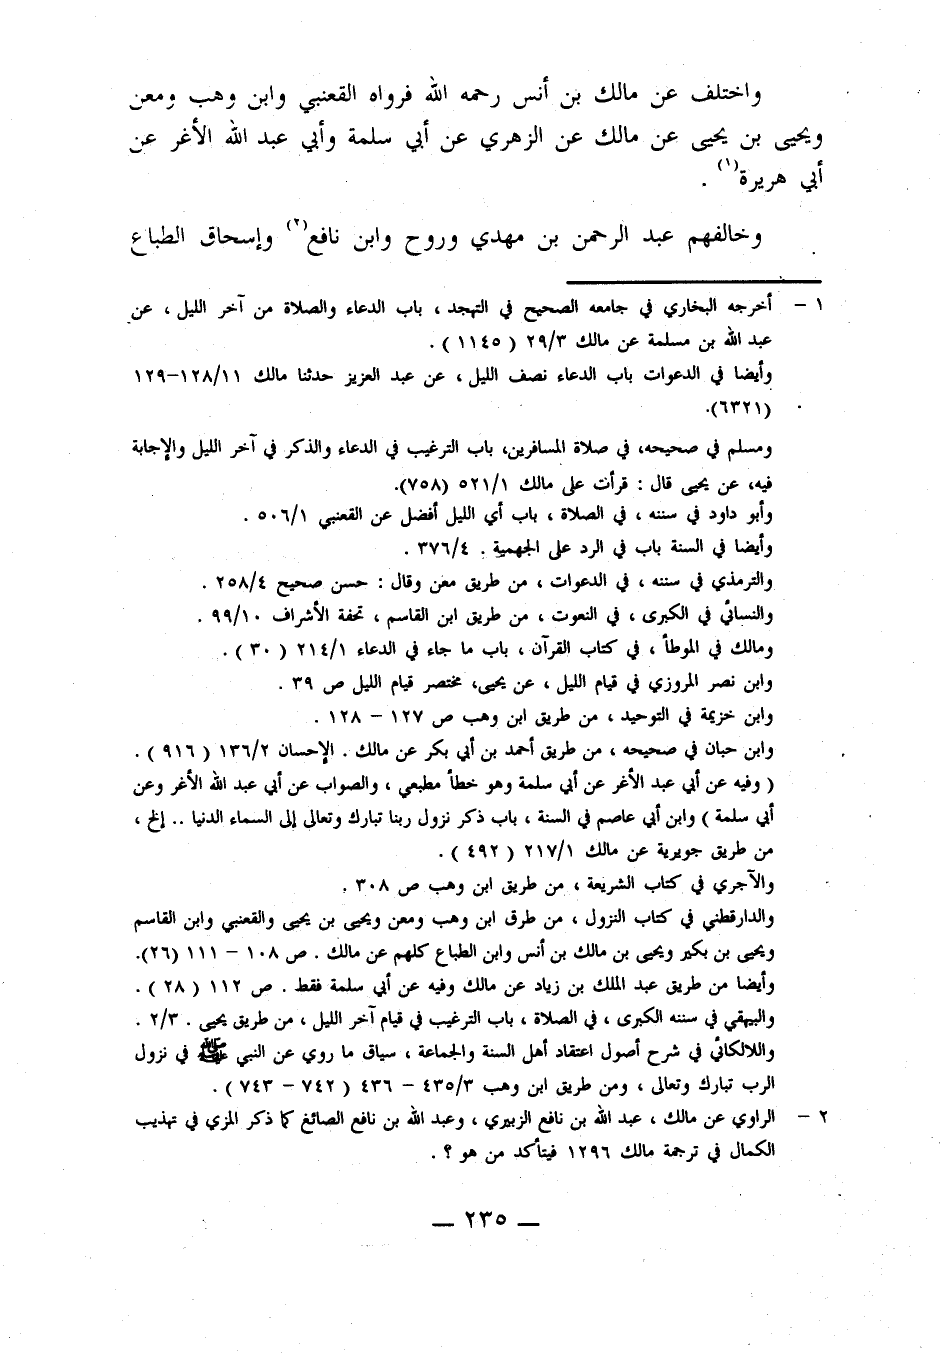 واختلف عن مالك بن أنس رحمه الله فرواه القعنبي وابن وهب ومعن
ويحيى بن يحيى عن مالك عن الزهري عن أبي سلمة وأبي عبد الله الأغر عن
أبي هريرة(١) .
وخالفهم عبد الرحمن بن مهدي وروح وابن نافع(٢) وإسحاق الطباع
١ – أخرجه البخاري في جامعه الصحيح في التهجد ، باب الدعاء والصلاة من آخر الليل ، عن
عبد الله بن مسلمة عن مالك ٢٩/٣ ( ١١٤٥ ) .
وأيضا في الدعوات باب الدعاء نصف الليل ، عن عبد العزيز حدثنا مالك ١٢٨/١١–١٢٩
(٦٣٢١).
ومسلم في صحيحه، في صلاة المسافرين، باب الترغيب في الدعاء والذكر في آخر الليل والإجابة
فيه، عن يحيى قال : قرأت على مالك ٥٢١/١ (٧٥٨).
وأبو داود في سننه ، في الصلاة ، باب أي الليل أفضل عن القعنبي ٥٠٦/١ .
وأيضا في السنة باب في الرد على الجهمية . ٣٧٦/٤ .
والترمذي في سننه ، في الدعوات ، من طريق معن وقال : حسن صحيح ٢٥٨/٤ .
والنسائي في الكبرى ، في النعوت ، من طريق ابن القاسم ، تحفة الأشراف ٩٩/١٠ .
ومالك في الموطأ ، في كتاب القرآن ، باب ما جاء في الدعاء ٢١٤/١ ( ٣٠ ) .
وابن نصر المروزي في قيام الليل ، عن يحيى، مختصر قيام الليل ص ٣٩ .
وابن خزيمة في التوحيد ، من طريق ابن وهب ص ١٢٧ – ١٢٨ .
وابن حبان في صحيحه ، من طريق أحمد بن أبي بكر عن مالك . الإحسان ١٣٦/٢ ( ٩١٦ ) .
( وفيه عن أبي عبد الأغر عن أبي سلمة وهو خطأ مطبعي ، والصواب عن أبي عبد الله الأغر وعن
أبي سلمة ) وابن أبي عاصم في السنة ، باب ذكر نزول ربنا تبارك وتعالى إلى السماء الدنيا .. إلخ ،
من طريق جويرية عن مالك ٢١٧/١ ( ٤٩٢ ) .
والآجري في كتاب الشريعة ، من طريق ابن وهب ص ٣٠٨ .
والدارقطني في كتاب النزول ، من طرق ابن وهب ومعن ويحيى بن يحيى والقعنبي وابن القاسم
ويحيى بن بكير ويحيى بن مالك بن أنس وابن الطباع كلهم عن مالك . ص ١٠٨ – ١١١ (٢٦).
وأيضا من طريق عبد الملك بن زياد عن مالك وفيه عن أبي سلمة فقط . ص ١١٢ ( ٢٨ ) .
والبيهقي في سننه الكبرى ، في الصلاة ، باب الترغيب في قيام آخر الليل ، من طريق يحيى . ٢/٣ .
واللالكائي في شرح أصول اعتقاد أهل السنة والجماعة ، سياق ما روي عن النبي ﷺ في نزول
الرب تبارك وتعالى ، ومن طريق ابن وهب ٤٣٥/٣ – ٤٣٦ ( ٧٤٢ – ٧٤٣ ) .
٢ – الراوي عن مالك ، عبد الله بن نافع الزبيري ، وعبد الله بن نافع الصائغ كما ذكر المزي في تهذيب
الكمال في ترجمة مالك ١٢٩٦ فيتأكد من هو ؟ .
— ٢٣٥ —